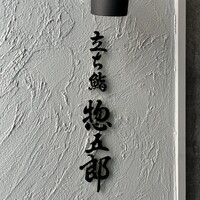 立ち鮨 惣五郎